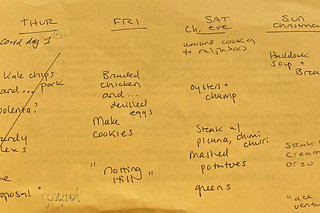 THUR
Covid day 1
Kale chips
and... pork
polenta?
FRI
Breaded
chicken
and...
deviled
eggs
Make
cookies
"Notting
Hill"
SAT
Ch. eve
walked cookies
to neighbors
oysters +
champ
Steak w/
picana, chimi
churri
Mashed
potatoes
greens
SUN
Christmas
Haddock
soup +
Brea
Steak
cream
orzo